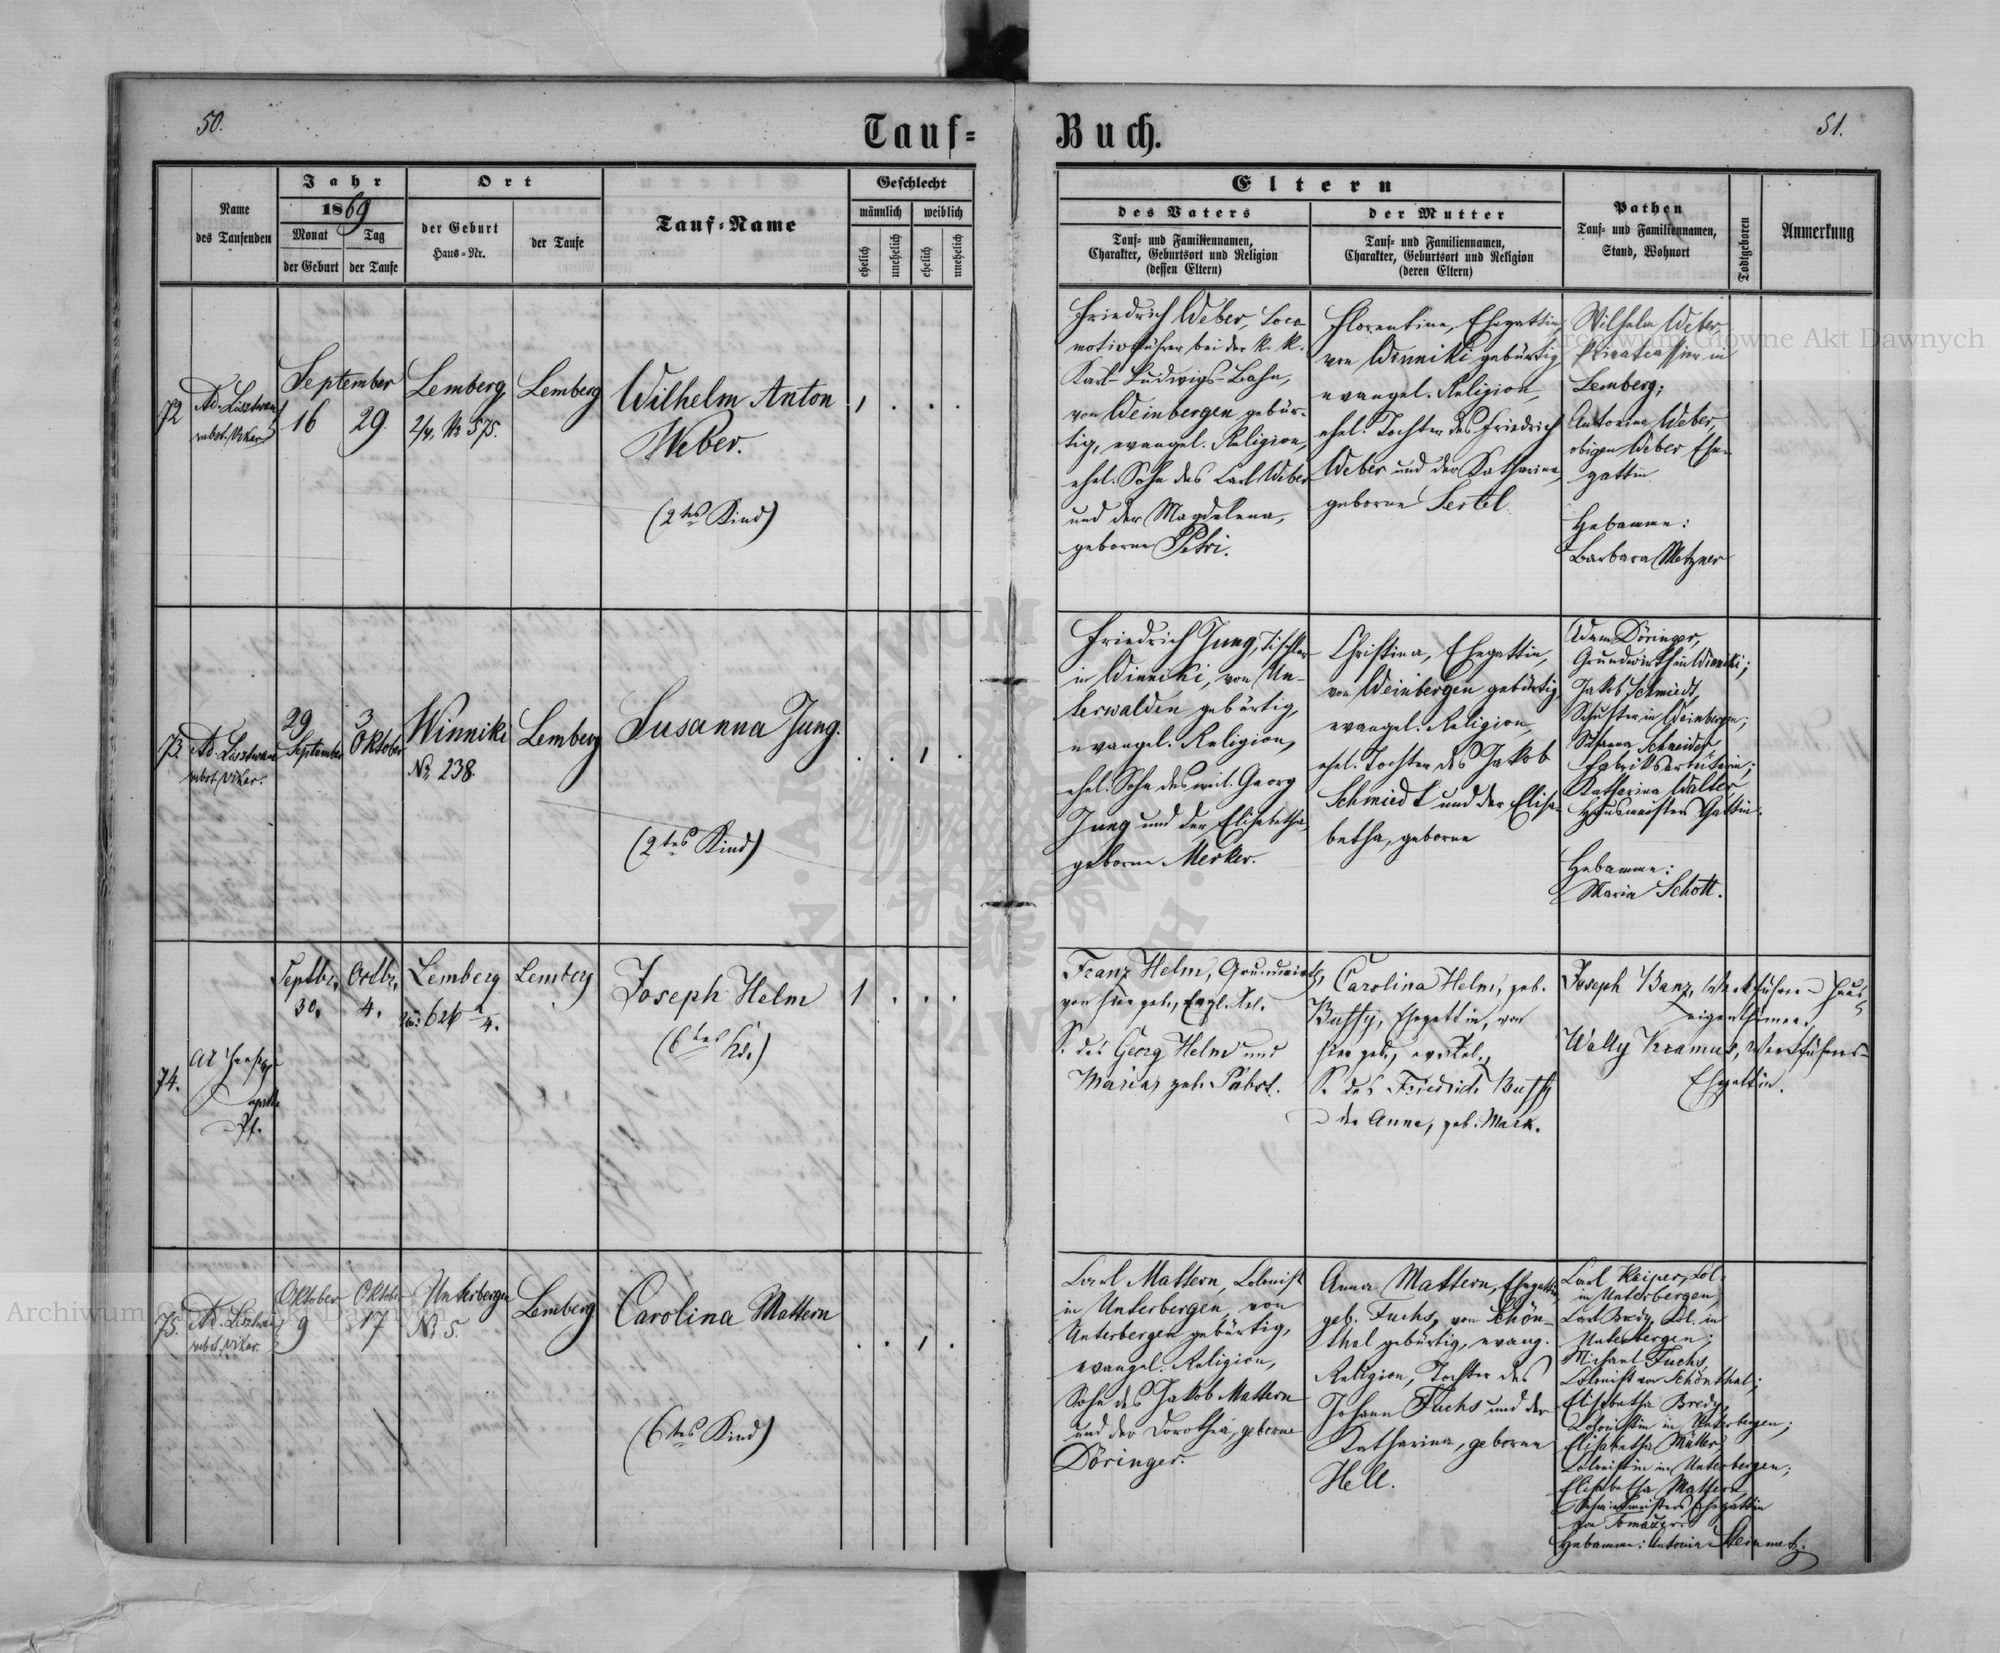 50.
Tauf=
Name
des Taufenden
Jahr
1869
Monat
Tag
der Geburt
der Taufe
Ort
der Geburt
Haus=Nr.
der Taufe
Tauf=Name
Geschlecht
männlich
weiblich
ehelich
unehelich
ehelich
unehelich
72
Ad. Lisztwan
subst. Vikar
September
16
29.
Lemberg
2/4. Nr 575.
Lemberg
Wilhelm Anton
Weber.
(2tes Kind)
1 . . .
73.
Ad. Lisztwan
subst. Vikar.
29
September
3
Oktober
Winniki
Nr. 238.
Lemberg
Susanna Jung.
(2tes Kind)
. . 1 .
74.
Septbr.
30.
Octbr.
4.
Lemberg
626
Lemberg
Joseph Helm
(6tes Kd.)
1 . . .
75.
Ad. Lisztwan
subst. Vikar.
Oktober
9
Oktober
17
Unterbergen
Nr 5.
Lemberg
Carolina Mattern
(6tes Kind)
. . 1 .
Buch.
51.
Eltern
des Vaters
Tauf= und Familiennamen,
Charakter, Geburtsort und Religion
(dessen Eltern)
der Mutter
Tauf= und Familiennamen,
Charakter, Geburtsort und Religion
(deren Eltern)
Pathen
Tauf= und Familiennamen,
Stand, Wohnort
Todtgeboren
Anmerkung
Friedrich Weber, Loco
motivführer bei der k. k.
Karl-Ludwigs-Bahn,
von Weinbergen gebür-
tig, evangel. Religion,
ehel. Sohn des Carl Weber
und der Magdalena,
geborne Petri.
Florentina, Ehegattin,
von Winniki gebürtig
evangel. Religion,
ehel. Tochter des Friedrich
Weber und der Katharina,
geborne Sertel
Wilhelm Weber,
Privatcassier in
Lemberg;
Antonina Weber,
obigen Weber Ehe-
gattin.
Hebamme:
Barbara Metzner
Friedrich Jung, Tischler
in Winniki, von Un-
terwalden gebürtig,
evangel. Religion,
ehel. Sohn des weil. Georg
Jung und der Elisabetha,
geborne Merker.
Christina, Ehegattin,
von Weinbergen gebürtig,
evangel. Religion,
ehel. Tochter des Jakob
Schmiedt und der Elisa-
betha, geborne
Adam Döringer,
Grundwirth in Winniki;
Jakob Schmiedt,
Schuster in Weinbergen;
Susanna Schneider,
Fabriksarbeiterin;
Katharina Walter,
Hausmeisters Gattin.
Hebamme:
Maria Schott.
Franz Helm, Grundwirth,
von hier geb., Evgl. Rel.
S. des Georg Helm und
Maria, geb. Pabst.
Carolina Helm, geb.
Bussy, Ehegattin, von
hier geb., ev. Rel.,
T. des Friedrich Bussy
u der Anna, geb. Mark.
Joseph Banz, Werkführer u Haus-
eigenthümer,
Wally Kramus, Werkführers-
Ehegattin.
Carl Mattern, Colonist
in Unterbergen, von
Unterbergen gebürtig,
evangel. Religion,
Sohn des Jakob Mattern
und der Dorothea, geborne
Döringer.
Anna Mattern, Ehegattin,
geb. Fuchs, von Schön-
thal gebürtig, evang.
Religion, Tochter des
Johann Fuchs und der
Katharina, geborne
Hell.
Carl Keiper, Col.
in Unterbergen;
Carl Bredy, Col. in
Unterbergen;
Michael Fuchs,
Colonist von Schönthal;
Elisabetha Bredy,
Colonistin in Unterbergen;
Elisabetha Müller
Colonistin in Unterbergen;
Elisabetha Mattern,
Ehegattin
von
Hebamme: Antonia Steinmetz.
Archiwum Główne Akt Dawnych